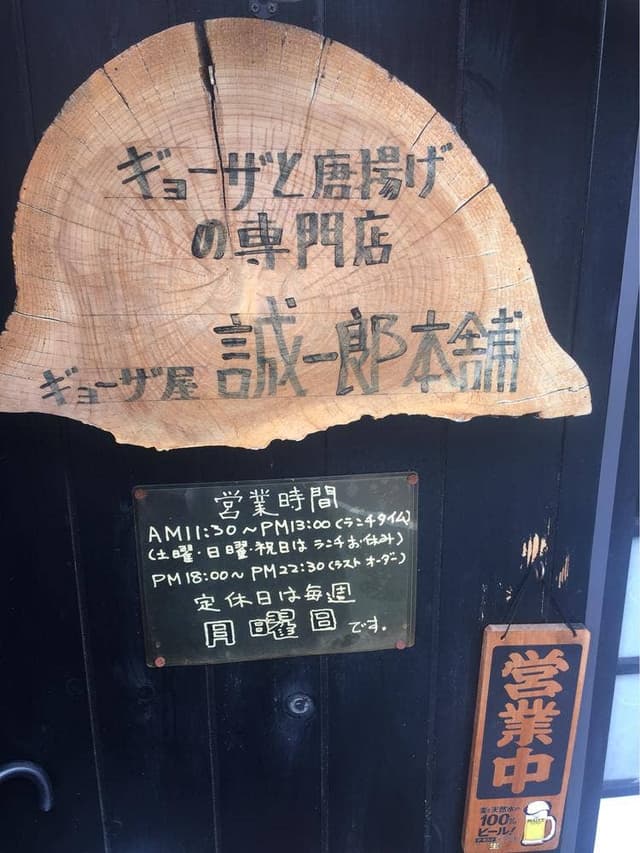 ギョーザと唐揚げ
の専門店
ギョーザ屋 誠一郎本舗
営業時間
AM11:30～PM13:00(ランチタイム)
(土曜・日曜・祝日はランチお休み)
PM18:00～PM22:30(ラストオーダー)
定休日は毎週
月曜日です。
営業中
100%
ビール!